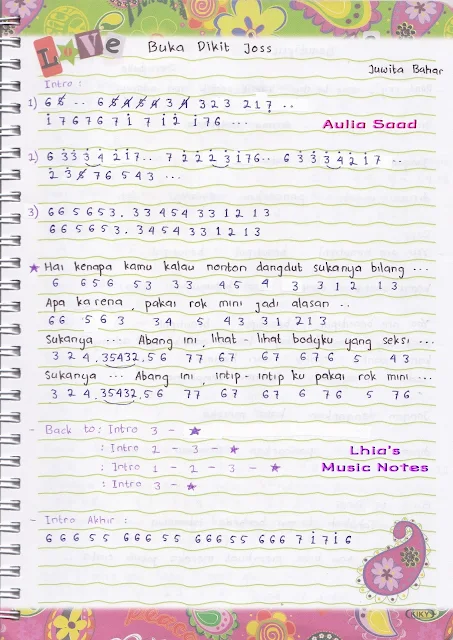 LOVE
Buka Dikit Joss
Juwita Bahar
Intro :
1) 6 5̸ .. 6 5̸ 5̸ 5̸ 5̸ 3 4̸ 3 2 3 2 1 7 ..
i 7 6 7 6 7 i 7 i 2̇ i 7 6 ...
Aulia Saad
2) 6 3̇ 3̇ 3̇ 4̇ 2̇ i 7 .. 7 2̇ 2̇ 2̇ 3̇ i 7 6 .. 6 3̇ 3̇ 3̇ 4̇ 2̇ i 7 ..
2̇ 3̇ 5̸ 7 6 5 4 3 ...
3) 6 6 5 6 5 3 . 3 3 4 5 4 3 3 1 2 1 3
6 6 5 6 5 3 . 3 4 5 4 3 3 1 2 1 3
★ Hai kenapa kamu kalau nonton dangdut sukanya bilang ...
6 6 5 6 5 3 3 3 4 5 4 3 3 1 2 1 3
Apa karena, pakai rok mini jadi alasan ..
6 6 5 6 3 3 4 5 4 3 3 1 2 1 3
Sukanya ... Abang ini, lihat - lihat bodyku yang seksi ...
3 2 4 . 35432 . 5 6 7 7 6 7 6 7 6 7 6 5 4 3
Sukanya ... Abang ini, intip - intip ku pakai rok mini ...
3 2 4 . 35432 . 5 6 7 7 6 7 6 7 6 7 6 5 7 6
- Back to : Intro 3 - ★
: Intro 2 - 3 - ★
: Intro 1 - 2 - 3 - ★
: Intro 3 - ★
Lhia's
Music Notes
- Intro Akhir :
6 6 6 5 5 6 6 6 5 5 6 6 6 5 5 6 6 6 7 i 7 i 6
KIKY